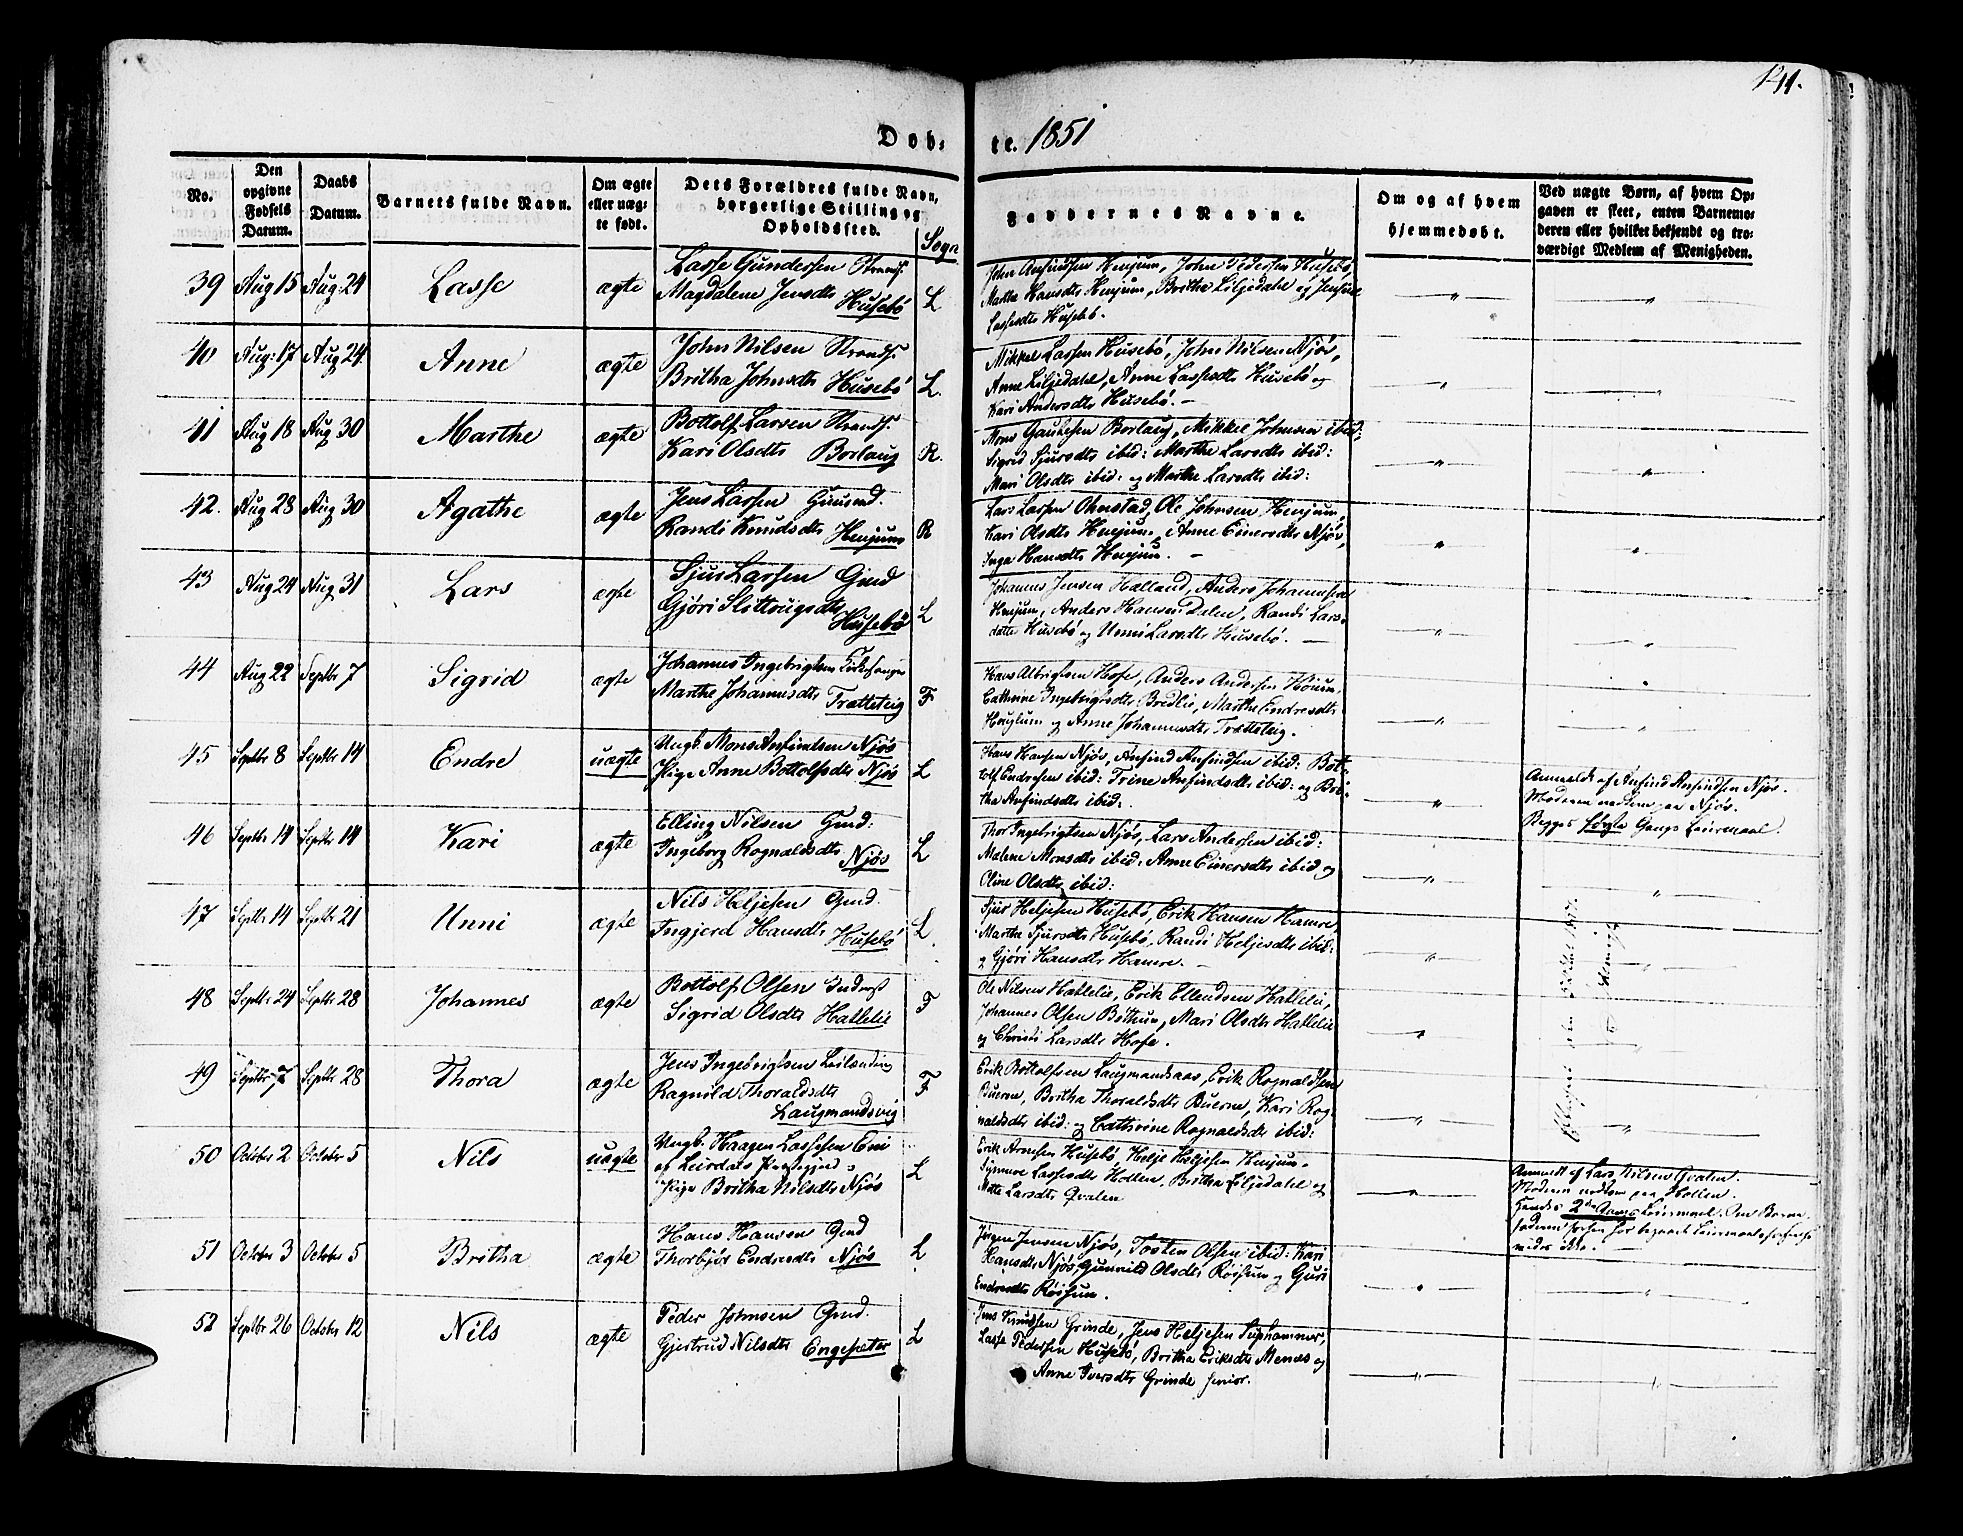 141.
Døb-
te. 1851
No.
Den opgivne Fødsels Datum.
Daabs Datum.
Barnets fulde Navn.
Om ægte eller uægte født.
Dets Forældres fulde Navn, borgerlige Stilling og Opholdssted.
Sogn
Faddernes Navne.
Om og af hvem hjemmedøbt.
Ved uægte Børn, af hvem Opgaven er skeet, enten Barnemoderen eller hvilket bekjendt og troværdigt Medlem af Menigheden.
39 Aug 15 Aug: 24 Lasse ægte
Lasse Gundersen Strands.
Magdalene Jensdtr Husebö L
John Ansindsen Henjum, John Pedersen Husebö,
Martha Hansdtr Henjum, Britha Liljedahl og Jensine
Lassesdtr Husebö.
40 Aug: 17 Aug 24 Anne ægte
John Nilsen Strands.
Britha Johnsdtr Husebö L.
Mikkel Lassen Husebö, John Nilsen Njøs,
Anne Liljedahl, Anne Lassesdtr Husebö og
Kari Andersdtr Husebö. —
41 Aug 18 Aug 30 Marthe ægte
Bottolf Larsen Strands.
Kari Olsdtr Borlaug R.
Mons Gautesen Borlaug, Mikkel Johnsen ibid:
Sigrid Sjursdtr ibid: Marthe Larsdtr ibid:
Mari Olsdtr ibid: og Marthe Larsdtr ibid:
42. Aug 28 Aug 30 Agathe ægte
Jens Larsen Gaard.
Randi Knudsdtr Henjum R
Lars Larsen Ohnstad, Ole Johnsen Henjum
Kari Olsdtr Henjum, Anne Einersdtr Njøs,
Inga Hansdtr Henjum. —
43 Aug 24 Aug 31 Lars ægte
Sjur Larsen Gmd
Gjöri Slittvigsdtr
Husebö L
Johannes Jensen Hælland, Anders Johannesen
Henjum, Anders Hansen Dalen, Randi Lars-
datter Husebö og Unni Larsdtr Husebö. —
44 Aug 22 Septbr 7 Sigrid ægte
Johannes Ingebrigtsen Kirkesanger
Marthe Johannesdtr Trætteteig F
Hans Albrigtsen Hofe, Anders Andersen Höium
Cathrine Ingebrigtsdtr Bredlie, Martha Endresdtr
og Anne Johannesdtr Trætteteig.
45 Septbr 8 Septbr 14 Endre uægte
Ungk. Mons Ansindsen Njøs
Pige Anne Bottolfsdtr Njøs L
Hans Hansen Njøs, Ansind Ansindsen ibid: Bot-
tolf Endresen ibid: Trine Ansindsdtr ibid: og Bri-
tha Ansindsdtr ibid:
Anmeldt af Ansind Ansindsen Njøs.
Moderen nedkom paa Njøs.
Begges første Gangs Leiermaal.
46 Septbr 14 Septbr 14 Kari ægte
Elling Nilsen Gmd:
Ingeborg Rognaldsdtr Njøs L
Thor Ingebrigtsen Njøs, Lars Andersen ibid:
Malene Monsdtr ibid: Anne Einersdtr ibid og
Oline Olsdtr ibid:
47 Septbr 14 Septbr 21 Unni ægte
Nils Heljesen Gmd.
Ingjerd Hansdtr Husebö L
Sjur Heljesen Husebö, Erik Hansen Hamre
Martha Sjursdtr Husebö, Randi Heljesdtr ibid:
og Gjöri Hansdtr Hamre. —
48 Septbr 24 Septbr 28 Johannes ægte
Bottolf Olsen Inderst
Sigrid Olsdtr Hatlelie F
Ole Nilsen Hatlelie, Erik Ellendsen Hatlelie,
Johannes Olsen Böthun, Mari Olsdtr Hatlelie
og Christi Larsdtr Hofe.
49 Septbr 7 Septbr 28 Thora ægte
Jens Ingebrigtsen Leilænding
Ragnild Thoraldsdtr
Laugmandsvig F
Erik Bottolfsen Laugmandsaas, Erik Rognaldsen
Buerne, Britha Thoraldsdtr Buerne, Kari Rog-
naldsdtr ibid: og Cathrine Rognaldsdtr ibid:
50 October 2 October 5 Nils uægte
Ungk. Haagen Lassesen Eni
af Leirdals Præstegjeld:
Pige Britha Nilsdtr Njøs L
Erik Arnesen Husebö, Helje Heljesen Henjum
Synneve Lassesdtr Hollen, Britha Liljedahl og
Mette Larsdtr Qvalen
Anmeldt af Lars Nilsen Qvalen.
Moderen nedkom paa Hollen.
Hendes 2den Gangs Leiermaal. Om Barne-
faderen forhen har begaaet Leiermaal
vides ikke. —
51 October 3 October 5 Britha ægte
Hans Hansen Gmd
Thorbjör Endresdtr Njøs L
Jørgen Jensen Njøs, Tosten Olsen ibid: Kari
Hansdtr Njøs, Gunnild Olsdtr Röisum og Guri
Endresdtr Röisum.
52 Septbr 26 October 12 Nils ægte
Peder Johnsen Gmd.
Gjertrud Nilsdtr Engesæter L
Jens Knudsen Grinde, Jens Heljesen Suphammer,
Lasse Pedersen Husebö, Britha Eriksdtr Menæs og
Anne Iversdtr Grinde senior.